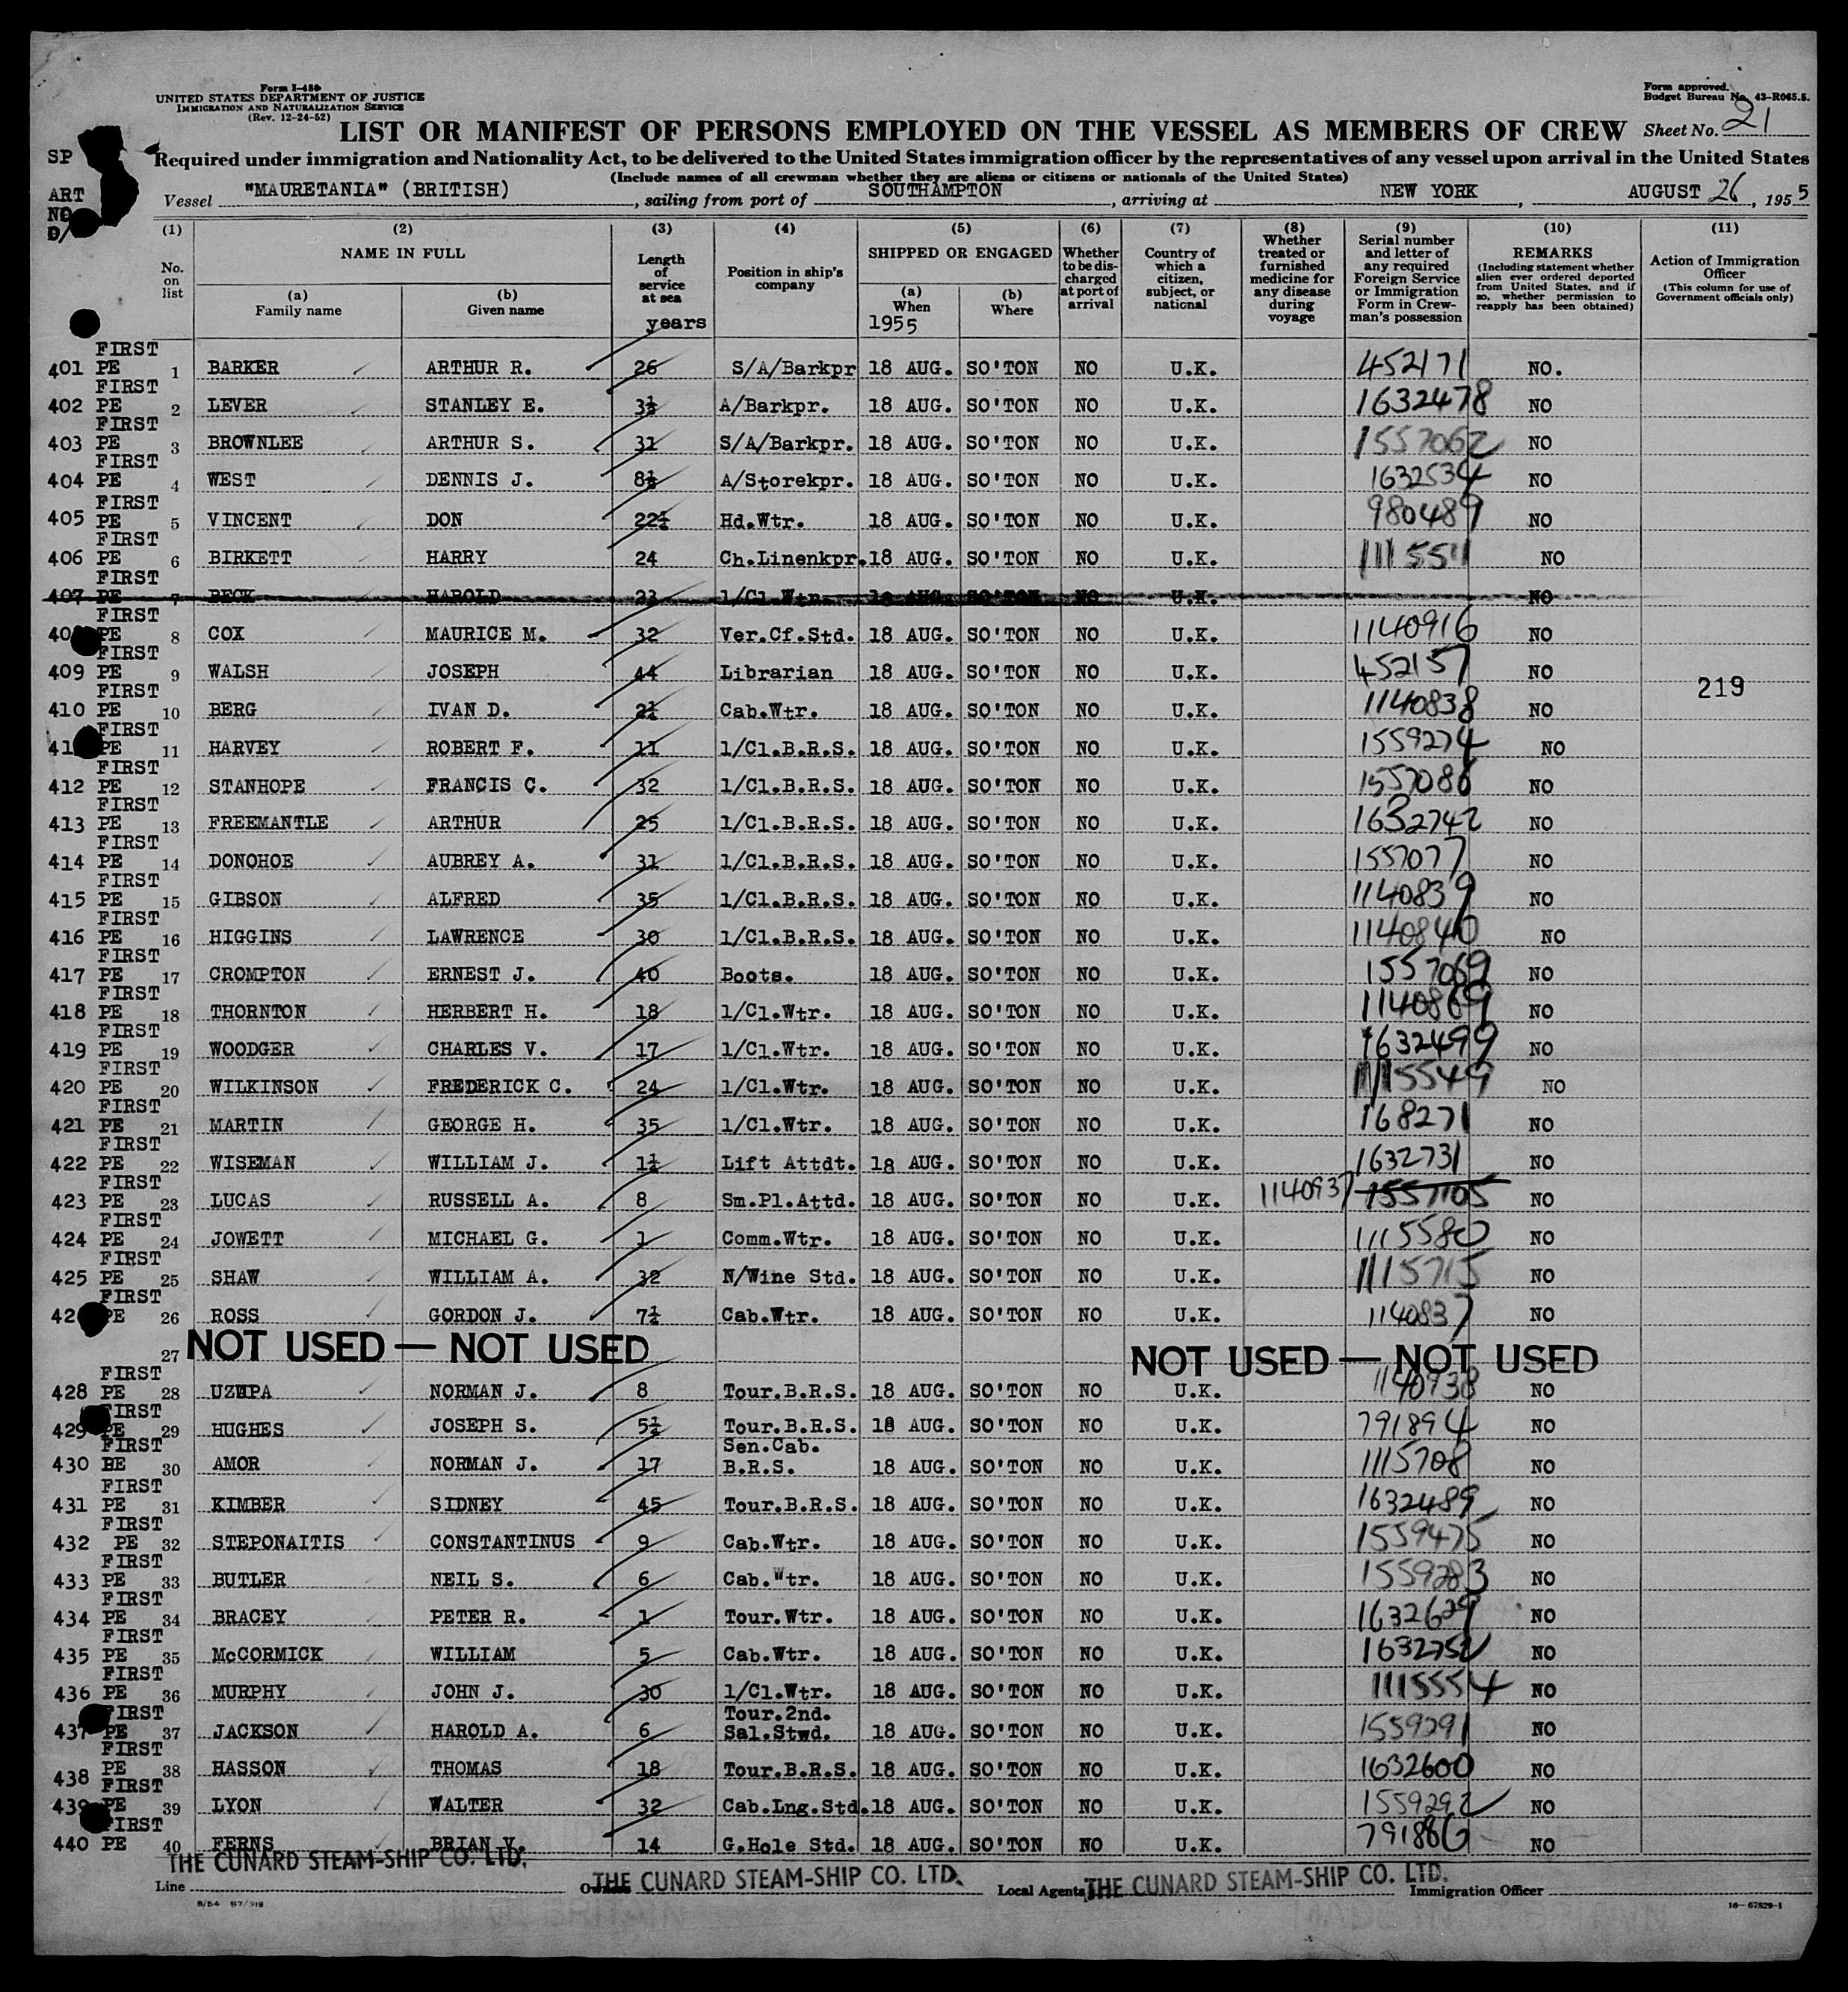 Form I-480
UNITED STATES DEPARTMENT OF JUSTICE
IMMIGRATION AND NATURALIZATION SERVICE
(Rev. 12-24-52)
Form approved.
Budget Bureau No. 43-R065.5.
LIST OR MANIFEST OF PERSONS EMPLOYED ON THE VESSEL AS MEMBERS OF CREW Sheet No. 21
Required under immigration and Nationality Act, to be delivered to the United States immigration officer by the representatives of any vessel upon arrival in the United States
(Include names of all crewman whether they are aliens or citizens or nationals of the United States)
SP
ART
NO
D/
Vessel "MAURETANIA" (BRITISH), sailing from port of SOUTHAMPTON, arriving at NEW YORK, AUGUST 26, 1955
(1) No. on list
(2) NAME IN FULL
(a) Family name
(b) Given name
(3) Length of service at sea years
(4) Position in ship's company
(5) SHIPPED OR ENGAGED
(a) When 1955
(b) Where
(6) Whether to be discharged at port of arrival
(7) Country of which a citizen, subject, or national
(8) Whether treated or furnished medicine for any disease during voyage
(9) Serial number and letter of any required Foreign Service or Immigration Form in Crewman's possession
(10) REMARKS (Including statement whether alien ever ordered deported from United States, and if so, whether permission to reapply has been obtained)
(11) Action of Immigration Officer (This column for use of Government officials only)
401 FIRST PE 1 BARKER ARTHUR R. 26 S/A/Barkpr 18 AUG. SO'TON NO U.K. 452171 NO.
402 FIRST PE 2 LEVER STANLEY E. 3½ A/Barkpr. 18 AUG. SO'TON NO U.K. 1632478 NO
403 FIRST PE 3 BROWNLEE ARTHUR S. 31 S/A/Barkpr. 18 AUG. SO'TON NO U.K. 1557062 NO
404 FIRST PE 4 WEST DENNIS J. 8½ A/Storekpr. 18 AUG. SO'TON NO U.K. 1632534 NO
405 FIRST PE 5 VINCENT DON 22½ Hd.Wtr. 18 AUG. SO'TON NO U.K. 980489 NO
406 FIRST PE 6 BIRKETT HARRY 24 Ch.Linenkpr. 18 AUG. SO'TON NO U.K. 1115511 NO
407 FIRST PE 7 BECK HAROLD 23 1/Cl.Wtr. 18 AUG. SO'TON NO U.K. NO
40 FIRST PE 8 COX MAURICE M. 32 Ver.Cf.Std. 18 AUG. SO'TON NO U.K. 1140916 NO
409 FIRST PE 9 WALSH JOSEPH 44 Librarian 18 AUG. SO'TON NO U.K. 452157 NO
219
410 FIRST PE 10 BERG IVAN D. 2½ Cab.Wtr. 18 AUG. SO'TON NO U.K. 1140838 NO
41 FIRST PE 11 HARVEY ROBERT F. 11 1/Cl.B.R.S. 18 AUG. SO'TON NO U.K. 1559274 NO
412 FIRST PE 12 STANHOPE FRANCIS C. 32 1/Cl.B.R.S. 18 AUG. SO'TON NO U.K. 1557086 NO
413 FIRST PE 13 FREEMANTLE ARTHUR 25 1/Cl.B.R.S. 18 AUG. SO'TON NO U.K. 1632742 NO
414 FIRST PE 14 DONOHOE AUBREY A. 31 1/Cl.B.R.S. 18 AUG. SO'TON NO U.K. 1557077 NO
415 FIRST PE 15 GIBSON ALFRED 35 1/Cl.B.R.S. 18 AUG. SO'TON NO U.K. 1140839 NO
416 FIRST PE 16 HIGGINS LAWRENCE 30 1/Cl.B.R.S. 18 AUG. SO'TON NO U.K. 1140840 NO
417 FIRST PE 17 CROMPTON ERNEST J. 40 Boots. 18 AUG. SO'TON NO U.K. 1557069 NO
418 FIRST PE 18 THORNTON HERBERT H. 18 1/Cl.Wtr. 18 AUG. SO'TON NO U.K. 1140869 NO
419 FIRST PE 19 WOODGER CHARLES V. 17 1/Cl.Wtr. 18 AUG. SO'TON NO U.K. 1632499 NO
420 FIRST PE 20 WILKINSON FREDERICK C. 24 1/Cl.Wtr. 18 AUG. SO'TON NO U.K. 1115549 NO
421 FIRST PE 21 MARTIN GEORGE H. 35 1/Cl.Wtr. 18 AUG. SO'TON NO U.K. 168271 NO
422 FIRST PE 22 WISEMAN WILLIAM J. 1½ Lift Attdt. 18 AUG. SO'TON NO U.K. 1632731 NO
423 FIRST PE 23 LUCAS RUSSELL A. 8 Sm.Pl.Attd. 18 AUG. SO'TON NO U.K. 1140937 1557105 NO
424 FIRST PE 24 JOWETT MICHAEL G. 1 Comm.Wtr. 18 AUG. SO'TON NO U.K. 1115580 NO
425 FIRST PE 25 SHAW WILLIAM A. 32 N/Wine Std. 18 AUG. SO'TON NO U.K. 1115715 NO
42 FIRST PE 26 ROSS GORDON J. 7½ Cab.Wtr. 18 AUG. SO'TON NO U.K. 1140837 NO
27 NOT USED — NOT USED NOT USED — NOT USED
428 FIRST PE 28 UZUPA NORMAN J. 8 Tour.B.R.S. 18 AUG. SO'TON NO U.K. 1140938 NO
429 FIRST PE 29 HUGHES JOSEPH S. 5½ Tour.B.R.S. 18 AUG. SO'TON NO U.K. 791894 NO
430 FIRST BE 30 AMOR NORMAN J. 17 Sen.Cab. B.R.S. 18 AUG. SO'TON NO U.K. 1115708 NO
431 FIRST PE 31 KIMBER SIDNEY 45 Tour.B.R.S. 18 AUG. SO'TON NO U.K. 1632489 NO
432 FIRST PE 32 STEPONAITIS CONSTANTINUS 9 Cab.Wtr. 18 AUG. SO'TON NO U.K. 1559475 NO
433 FIRST PE 33 BUTLER NEIL S. 6 Cab.Wtr. 18 AUG. SO'TON NO U.K. 1559283 NO
434 FIRST PE 34 BRACEY PETER R. 1 Tour.Wtr. 18 AUG. SO'TON NO U.K. 1632629 NO
435 FIRST PE 35 McCORMICK WILLIAM 5 Cab.Wtr. 18 AUG. SO'TON NO U.K. 1632752 NO
436 FIRST PE 36 MURPHY JOHN J. 30 1/Cl.Wtr. 18 AUG. SO'TON NO U.K. 1115554 NO
437 FIRST PE 37 JACKSON HAROLD A. 6 Tour.2nd. Sal.Stwd. 18 AUG. SO'TON NO U.K. 1559291 NO
438 FIRST PE 38 HASSON THOMAS 18 Tour.B.R.S. 18 AUG. SO'TON NO U.K. 1632600 NO
439 FIRST PE 39 LYON WALTER 32 Cab.Lng.Std. 18 AUG. SO'TON NO U.K. 1559292 NO
440 FIRST PE 40 FERNS BRIAN V. 14 G.Hole Std. 18 AUG. SO'TON NO U.K. 791886 NO
Line THE CUNARD STEAM-SHIP CO. LTD. Owners THE CUNARD STEAM-SHIP CO. LTD. Local Agents THE CUNARD STEAM-SHIP CO. LTD. Immigration Officer
8/54 B7/919
16—67829-1